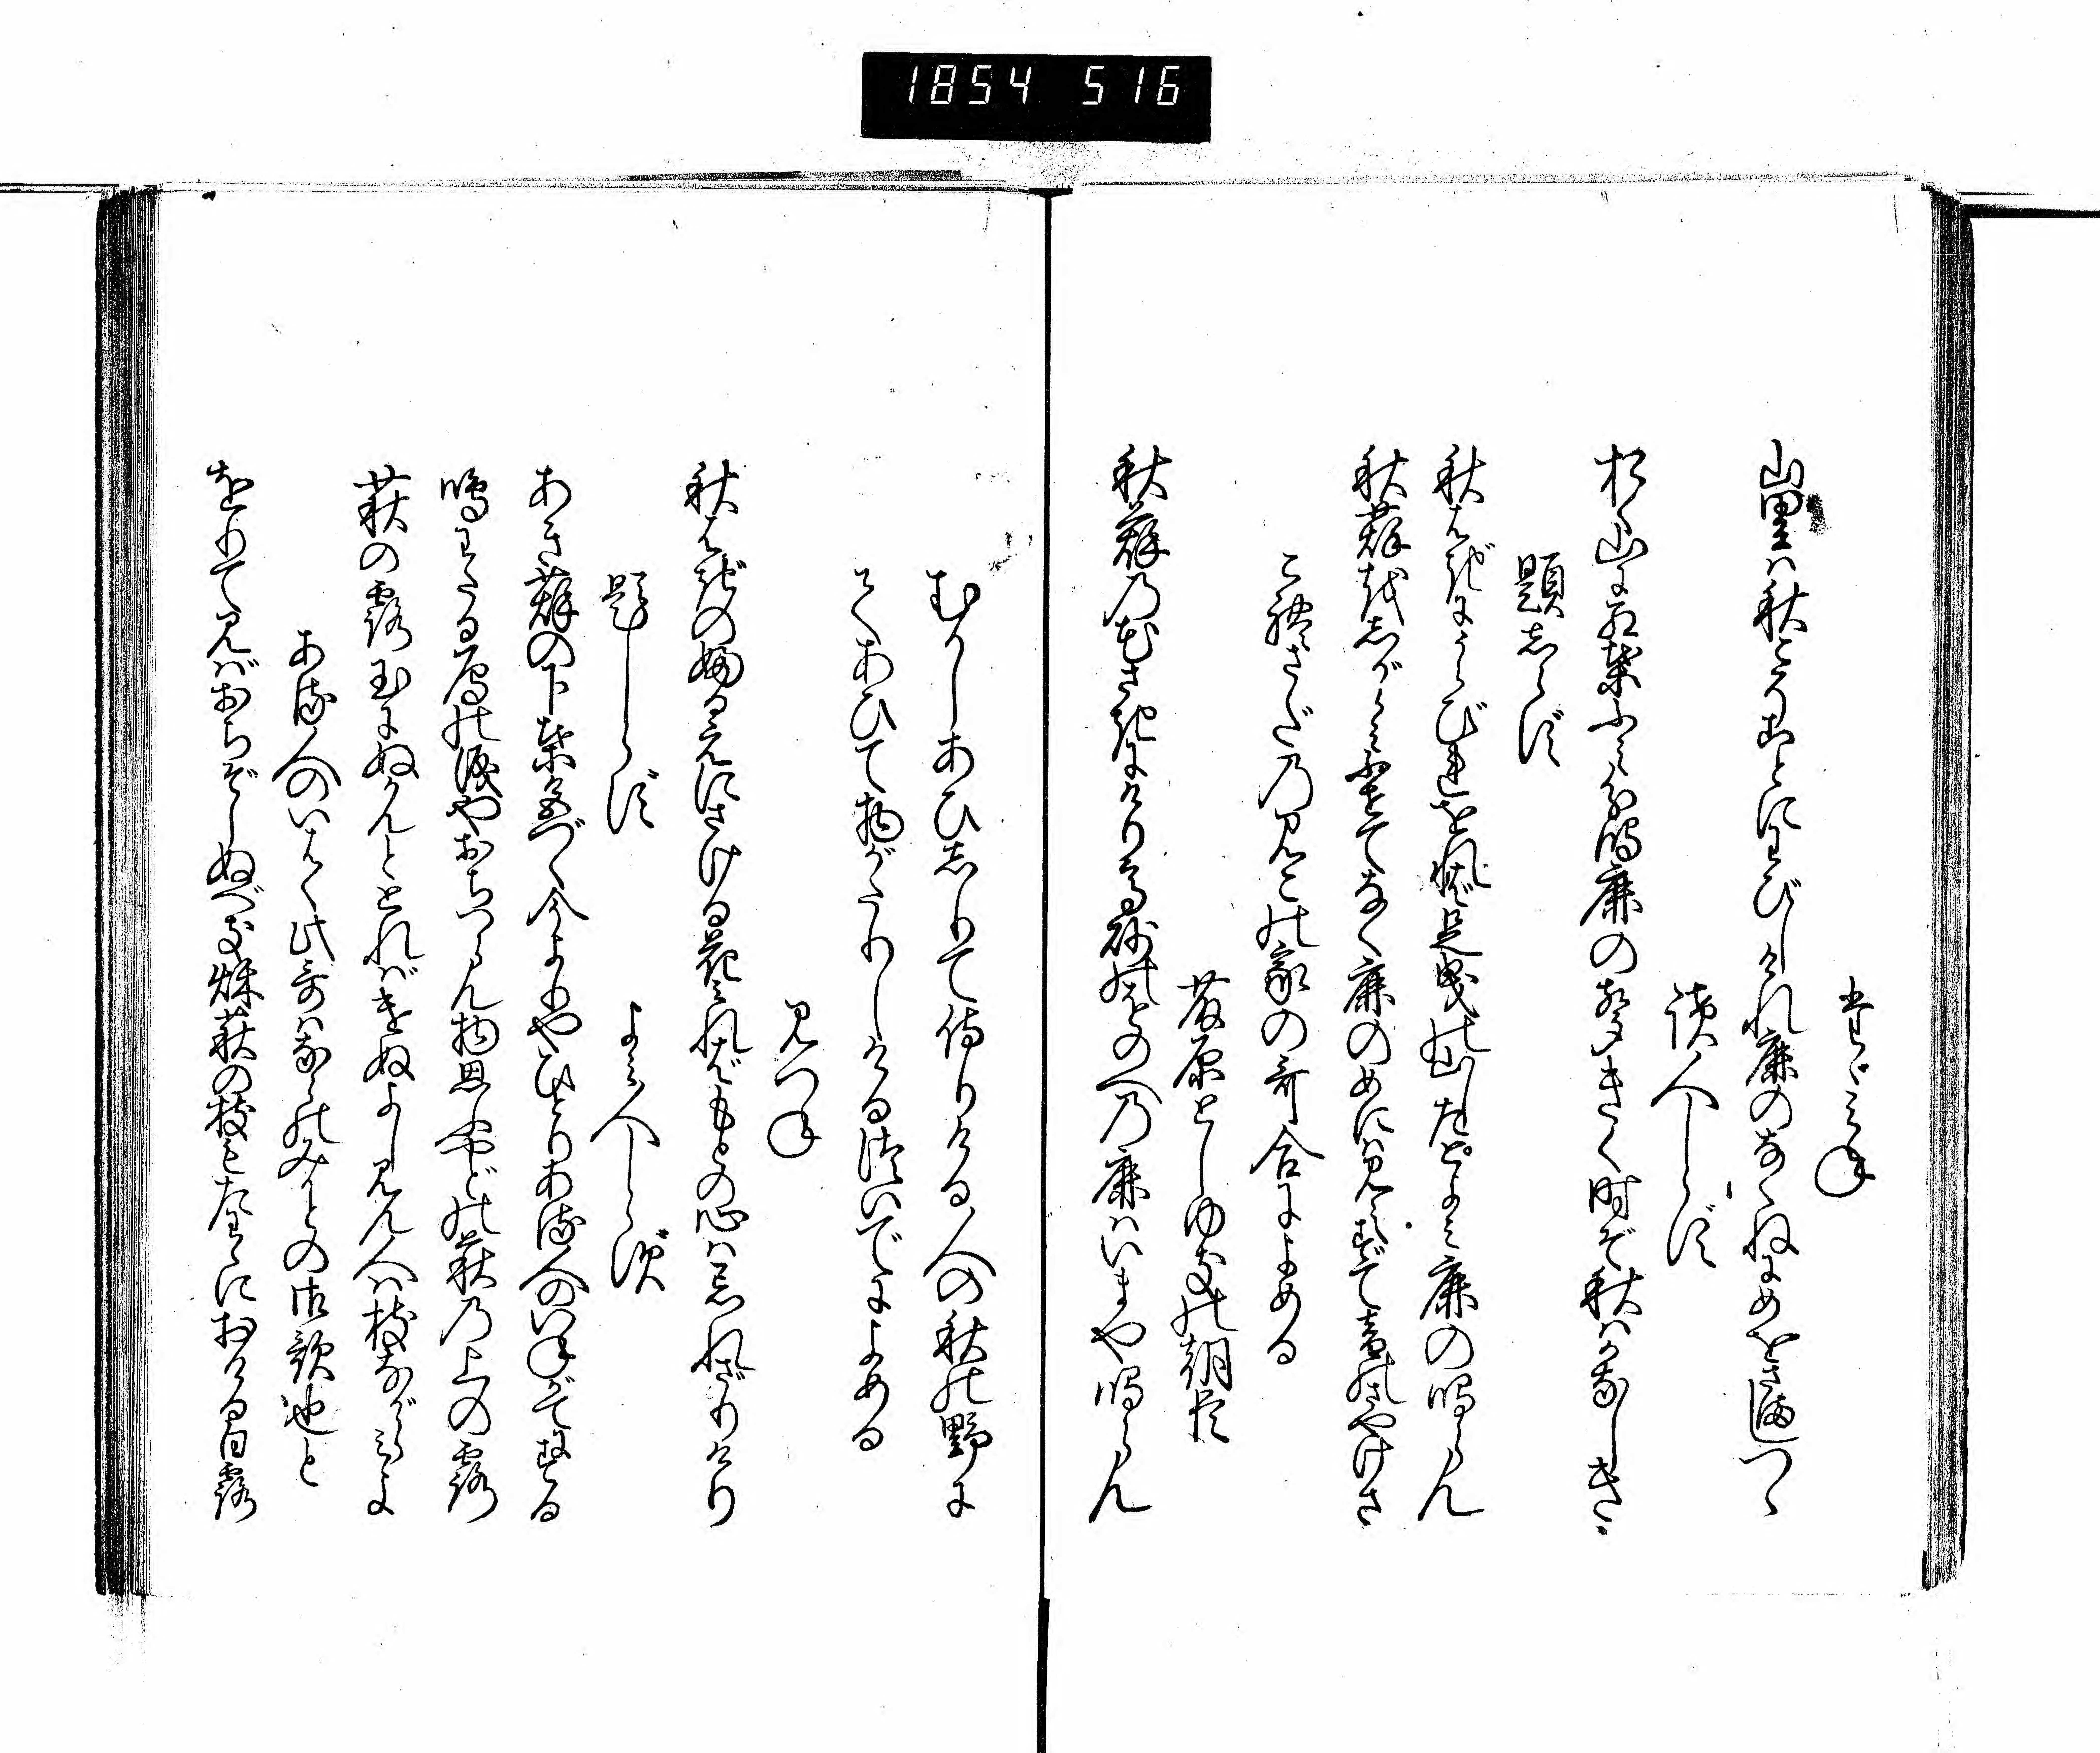 1854 516
たゞみね
山里は秋こそことにわびしけれ鹿のなくねにめをさましつゝ
読人しらず
おく山に紅葉ふみ分鳴鹿の声きく時ぞ秋はかなしき
題しらず
秋はぎにうらびれをれば足曳の山したとよみ鹿の鳴らん
秋萩をしがらみふせてなく鹿のめには見えずて音のさやけさ
これさだの見この家の哥合によめる
藤原としゆきの朝臣
秋萩の花さきにけり高砂のをのへの鹿はいまや鳴らん
むかしあひしりて侍りける人の秋の野に
てあひて物がたりしける次いでによめる
見つね
秋はぎの婦るえにさける花みればもとの心は忘れざりけり
題しらず
よみ人しらず
あき萩の下葉色づく今よりやひとりある人のいねがてにする
鳴わたる鴈の涙やおちつらん物思ふやどの萩の上の露
萩の露玉にぬかんととればけぬよし見ん人は枝ながらみよ
ある人のいはく此哥はならのみかどの御歌也と
をりて見ばおちぞしぬべき秋萩の枝もたわゝにおける白露